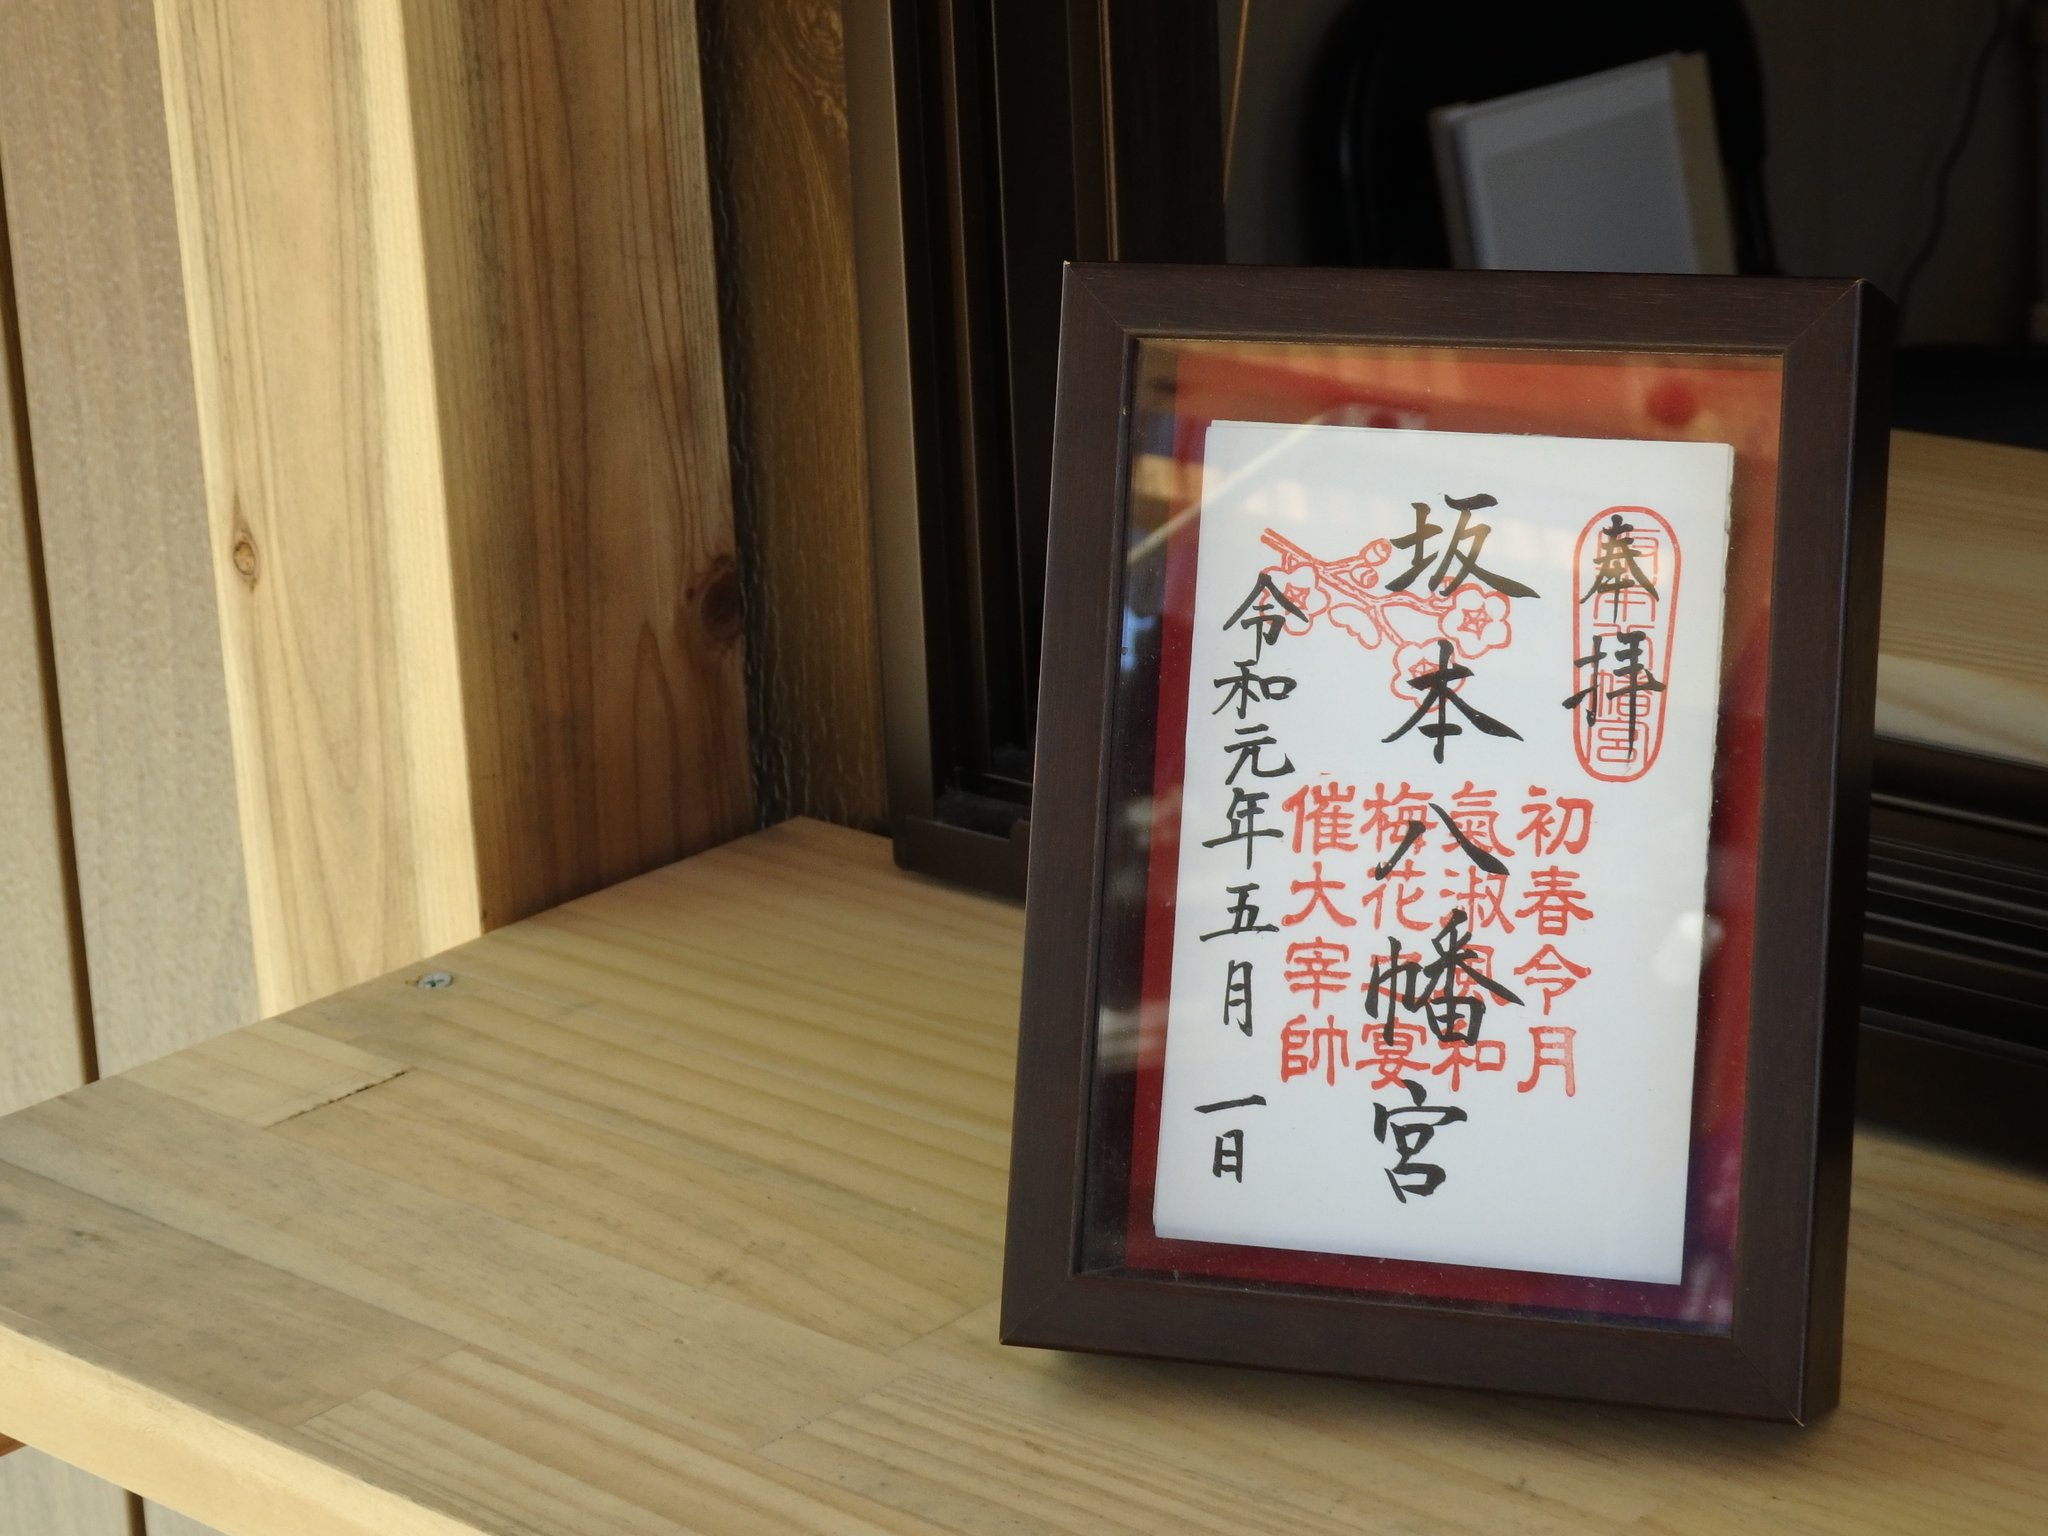 奉拝
初春令月
氣淑風和
坂本八幡宮
梅花之宴
催大宰帥
令和元年五月一日